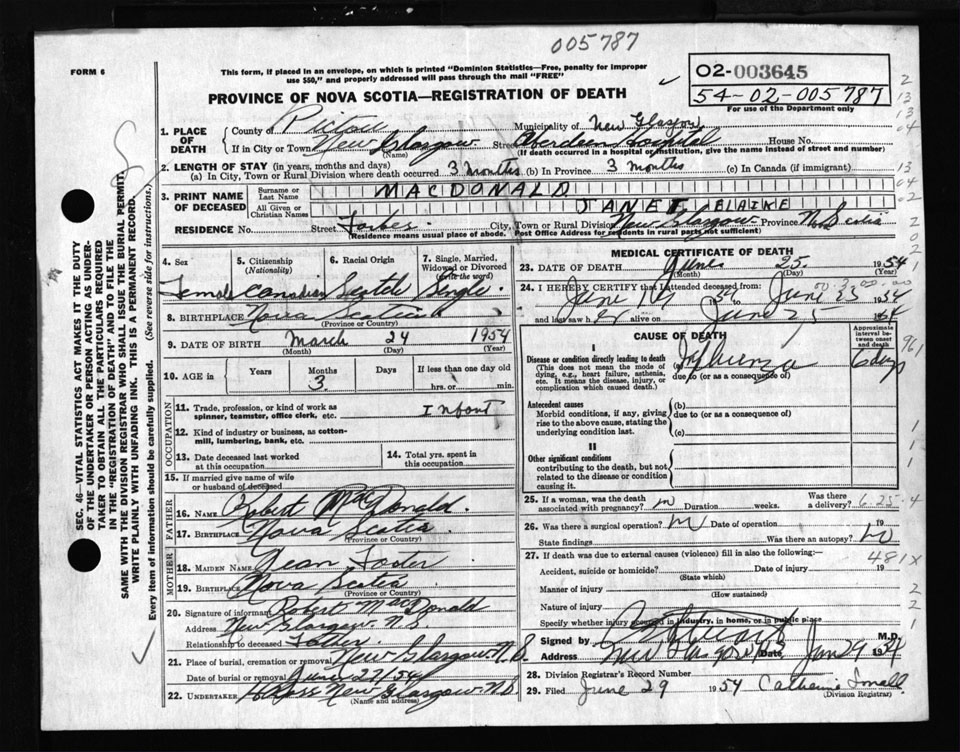 005787
FORM 6
This form, if placed in an envelope, on which is printed "Dominion Statistics—Free, penalty for improper
use $50," and properly addressed will pass through the mail "FREE"
02-003645
54-02-005787
For use of the Department only
PROVINCE OF NOVA SCOTIA—REGISTRATION OF DEATH
1. PLACE OF DEATH { County of Pictou Municipality of New Glasgow
If in City or Town New Glasgow (Name) Street Aberdeen Hospital House No.
(If death occurred in a hospital or institution, give name instead of street and number)
2. LENGTH OF STAY (in years, months and days)
(a) In City, Town or Rural District where death occurred 3 Months (b) In Province 3 months (c) In Canada (if immigrant)
3. PRINT NAME OF DECEASED { Surname or Last Name MACDONALD
All Given or Christian Names JANET BLAIKE
RESIDENCE No. Street Forbes City, Town or Rural District New Glasgow Province N. Scotia
(Residence means usual place of abode. Post Office Address for residents in rural parts not sufficient)
4. Sex 5. Citizenship (Nationality) 6. Racial Origin 7. Single, Married, Widowed or Divorced (Write the word)
Female Canadian Scotch Single
8. BIRTHPLACE Nova Scotia
(Province or Country)
9. DATE OF BIRTH March 24 1954
(Month) (Day) (Year)
10. AGE in { Years Months 3 Days If less than one day old
hrs. or min.
OCCUPATION
11. Trade, profession, or kind of work as spinner, teamster, office clerk, etc. Infant
12. Kind of industry or business, as cotton-mill, lumbering, bank, etc.
13. Date deceased last worked at this occupation 14. Total yrs. spent in this occupation
15. If married give name of wife or husband of deceased
FATHER
16. Name Robert MacDonald
17. Birthplace Nova Scotia
(Province or Country)
MOTHER
18. Maiden Name Jean Foster
19. Birthplace Nova Scotia
(Province or Country)
20. Signature of informant Robert MacDonald
Address New Glasgow N.S.
Relationship to deceased Father
21. Place of burial, cremation or removal New Glasgow N.S.
Date of burial or removal June 27/54
22. Undertaker New Glasgow N.S.
(Name and address)
MEDICAL CERTIFICATE OF DEATH
23. DATE OF DEATH June 25 1954
(Month) (Day) (Year)
24. I HEREBY CERTIFY that I attended deceased from:
June 19 54 to June 25 1954
and last saw her alive on June 25 1954
CAUSE OF DEATH
Approximate interval between onset and death
I
Disease or condition directly leading to death
(This does not mean the mode of dying, e.g., heart failure, asthenia, etc. It means the disease, injury, or complication which caused death.)
(a) Influenza 6 days
due to (or as a consequence of)
Antecedent causes
Morbid conditions, if any, giving rise to the above cause, stating the underlying condition last.
(b)
due to (or as a consequence of)
(c)
II
Other significant conditions
contributing to the death, but not related to the disease or condition causing it.
25. If a woman, was the death associated with pregnancy? Duration weeks. Was there a delivery? 6-25-4
26. Was there a surgical operation? Date of operation 19
State findings Was there an autopsy? no
27. If death was due to external causes (violence) fill in also the following:—
481X
Accident, suicide or homicide? Date of injury 19
(State which)
Manner of injury
(How sustained)
Nature of injury
Specify whether injury occurred in industry, in home, or in public place
Signed by M.D.
Address New Glasgow Date Jun 29 1954
28. Division Registrar's Record Number
29. Filed June 29 1954 Catherine Small
(Division Registrar)
SEC. 46—VITAL STATISTICS ACT MAKES IT THE DUTY
OF THE UNDERTAKER OR PERSON ACTING AS UNDER-
TAKER TO OBTAIN ALL THE PARTICULARS REQUIRED
IN THE "REGISTRATION OF DEATH" AND TO FILE THE
SAME WITH THE DIVISION REGISTRAR WHO SHALL ISSUE THE BURIAL PERMIT.
WRITE PLAINLY WITH UNFADING INK. THIS IS A PERMANENT RECORD.
Every item of information should be carefully supplied. (See reverse side for instructions.)